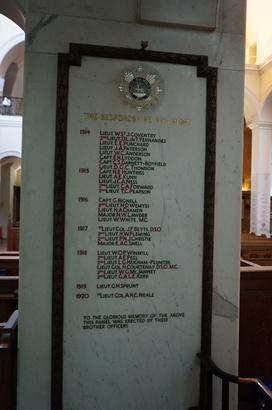 THE BEDFORDSHIRE REGIMENT
1914 LIEUT W.ST J.COVENTRY
2ND LIEUT D.L. DE T.FERNANDES
LIEUT E.E.PUNCHARD
LIEUT J.A.PATERSON
LIEUT W.C.ANDERSON
CAPT E.H.LYDDON
CAPT C.S.GARNETT-BOTFIELD
LIEUT D.G.C.THOMSON
1915 CAPT R.E.HUNTRISS
LIEUT A.E.KUHN
LIEUT J.C.A.NISS
2ND LIEUT C.A.FORWARD
2ND LIEUT T.C.PEARSON
1916 CAPT G.BIGNELL
2ND LIEUT N.D.WEMYSS
LIEUT H.A.CHAMEN
MAJOR N.W.LAWDER
LIEUT W.WHITE. M.C.
1917 LIEUT COL.J.F.BETTS.D.S.O
2ND LIEUT H.W.FLEMING
2ND LIEUT P.N.J.CHRISTIE
MAJOR E.A.G.SNELL
1918 LIEUT W.O.P.WINMILL
2ND LIEUT A.E.PEEL
LIEUT L.G.HEIGHAM-PLUMTRE
LIEUT COL.H.COURTENAY.D.S.O. M.C.
2ND LIEUT W.G.MCJANNET
2ND LIEUT G.A.L.E.KERR
1919 LIEUT.G.H.SPRUNT
1920 LIEUT COL.A.H.C. NEALE
TO THE GLORIOUS MEMORY OF THE ABOVE
THIS PANEL WAS ERECTED BY THESE
BROTHER OFFICERS